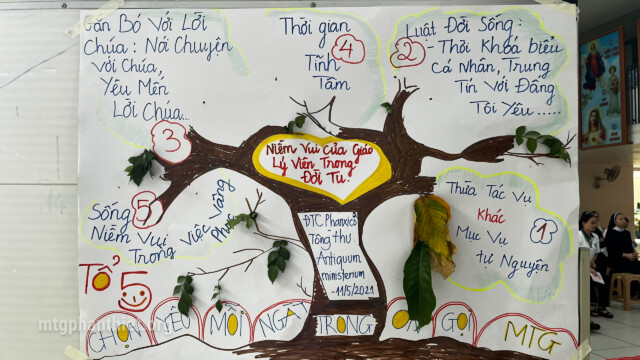 Gắn Bó Với Lời
Chúa: Nói Chuyện
Với Chúa,
Yêu Mến
Lời Chúa...
3
Thời gian
4
Tĩnh
Tâm
Luật Đời Sống:
2
- Thời Khoá biểu
Cá Nhân, Trung
Tín Với Đấng
Tôi Yêu.....
Niềm Vui Của Giáo
Lý Viên Trong
Đời Tu.
5
Sống
Niềm Vui
Trong Việc Vâng
Phục
ĐTC Phanxicô
Tông thư
Antiquum
ministerium
-11/5/2021
Thừa Tác Vụ
Khác
1
Mục Vụ
tự Nguyện
Tổ 5
CHỌN YÊU MỖI NGÀY TRONG ƠN GỌI MTG
mtgphanthiet.org